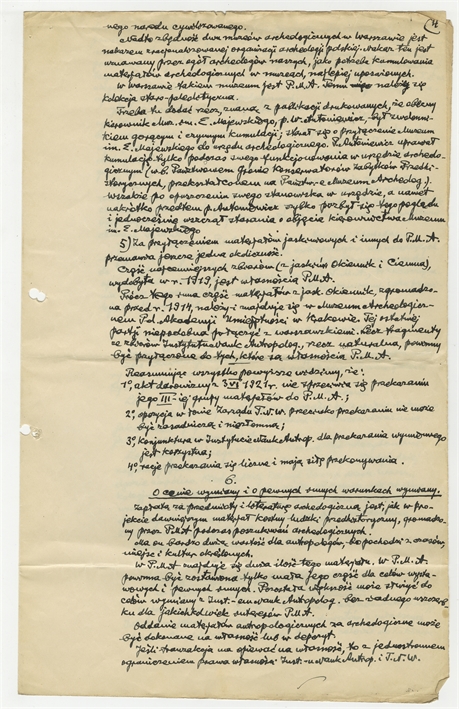 nego narodu cywilizowanego.
Nadto zbędność dwu muzeów archeologicznych w Warszawie jest
nakazem zracjonalizowanej organizacji archeologii polskiej. Nakaz ten jest
uznawany przez ogół archeologów naszych, jako potrzeba kumulowania
materjałów archeologicznych w muzeach, najlepiej uposażonych.
W Warszawie takiem muzeum jest P.M.A. Temu należy się
kolekcja staro-paleolityczna.
Trzeba tu dodać rzecz znaną z publikacji drukowanych, że obecny
kierownik Muz. im. E. Majewskiego, p. W. Antoniewicz, był zwolenni-
kiem gorącym i czynnym kumulacji; starał się o przyłączenie Muzeum
im. E. Majewskiego do urzędu archeologicznego. P. Antoniewicz uprawiał
kumulację tylko podczas swego funkcjonowania w urzędzie archeolo-
gicznym (w b. Państwowem Gronie Konserwatorów Zabytków Przedhi-
storycznych, przekształconem na Państw-e Muzeum Archeolog.).
Wszakże po opuszczeniu swego stanowiska w urzędzie, a nawet
na krótko przedtem p. Antoniewicz szybko pozbył się tego poglądu
i jednocześnie wszczął starania o objęcie kierownictwa Muzeum
im. E. Majewskiego
5) Za przyłączeniem materjałów jaskiniowych i innych do P.M.A.
przemawia jeszcze jedna okoliczność.
Część wzmiankowanych zbiorów (z jaskiń Okiennik i Ciemna),
wydobyta w r. 1919, jest własnością P.M.A.
Prócz tego inna część materjałów z jask. Okiennik, zgromadzo-
na przed r. 1914, należy i znajduje się w Muzeum Archeologicz-
nem Pol. Akademji Umiejętności w Krakowie. Tej ostatniej
partji niepodobna połączyć z warszawskiemi. Lecz fragmenty
ze zbiorów Instytutu Nauk Antropolog., rzecz naturalna, powinny
być przyłączone do tych, które są własnością P.M.A.
Reasumując wszystko powyższe widzimy, że:
1°, akt darowizny z 3 VI 1921 r. nie sprzeciwia się przekazaniu
jego III-iej grupy materjałów do P.M.A.;
2°, opozycja w łonie Zarządu T.N.W. przeciwko przekazaniu nie może
być zasadnicza i niezłomna;
3°, konjunktura w Instytucie Nauk Antrop. dla przekazania wymiennego
jest korzystna;
4°, racje przekazania są liczne i mają siłę przekonywania.
6.
O cenie wymiany i o pewnych innych warunkach wymiany.
Zapłatą za przedmioty i literaturę archeologiczną jest, jak w pro-
jekcie dawniejszym materjał kostny ludzki przedhistoryczny, gromadzo-
ny przez P.M.A. podczas poszukiwań archeologicznych.
Ma on bardzo dużą wartość dla antropologów, bo pochodzi z czasów,
miejsc i kultur określonych.
W P.M.A. znajduje się duża ilość tego materjału. W P.M.A.
powinna być zostawiona tylko mała jego część dla celów wysta-
wowych i pewnych innych. Pozostała większość może służyć do
celów wymiany z Inst-em Nauk Antropolog. bez żadnego uszczerb-
ku dla jakichkolwiek interesów P.M.A.
Oddanie materjałów antropologicznych za archeologiczne może
być dokonane na własność lub w depozyt.
Jeśli tranzakcja ma opiewać na własność, to z jednostronnem
ograniczeniem prawa własności Inst-u Nauk Antrop. i T.N.W.